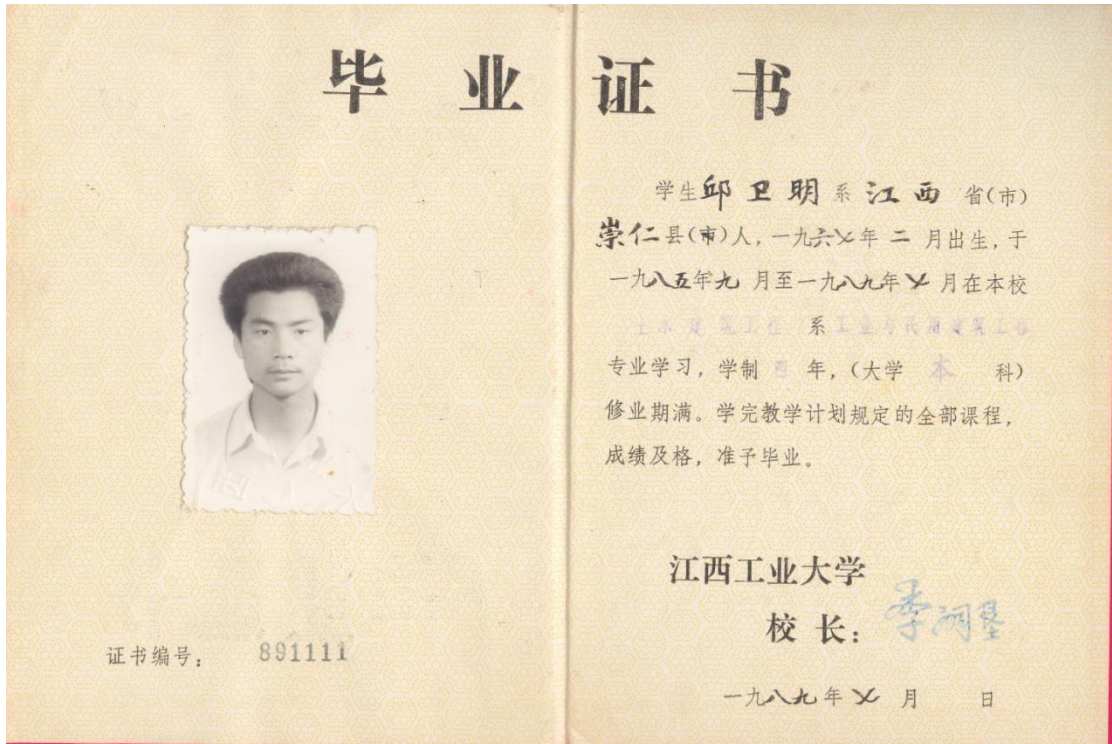 毕业证书
学生邱卫明系江西省(市)
崇仁县(市)人,一九六七年二月出生,于
一九八五年九月至一九八九年七月在本校
土木建筑工程系工业与民用建筑工程
专业学习,学制四年,(大学本科)
修业期满。学完教学计划规定的全部课程,
成绩及格,准予毕业。
江西工业大学
校长:
证书编号:891111
一九八九年七月 日